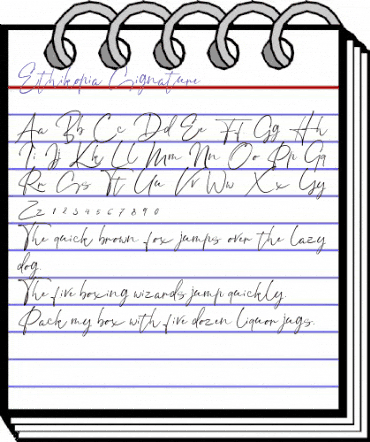 Ethikopia Signature
Aa Bb Cc Dd Ee Ff Gg Hh
Ii Jj Kk Ll Mm Nn Oo Pp Qq
Rr Ss Tt Uu Vv Ww Xx Yy
Zz 1 2 3 4 5 6 7 8 9 0
The quick brown fox jumps over the lazy
dog.
The five boxing wizards jump quickly.
Pack my box with five dozen liquor jugs.